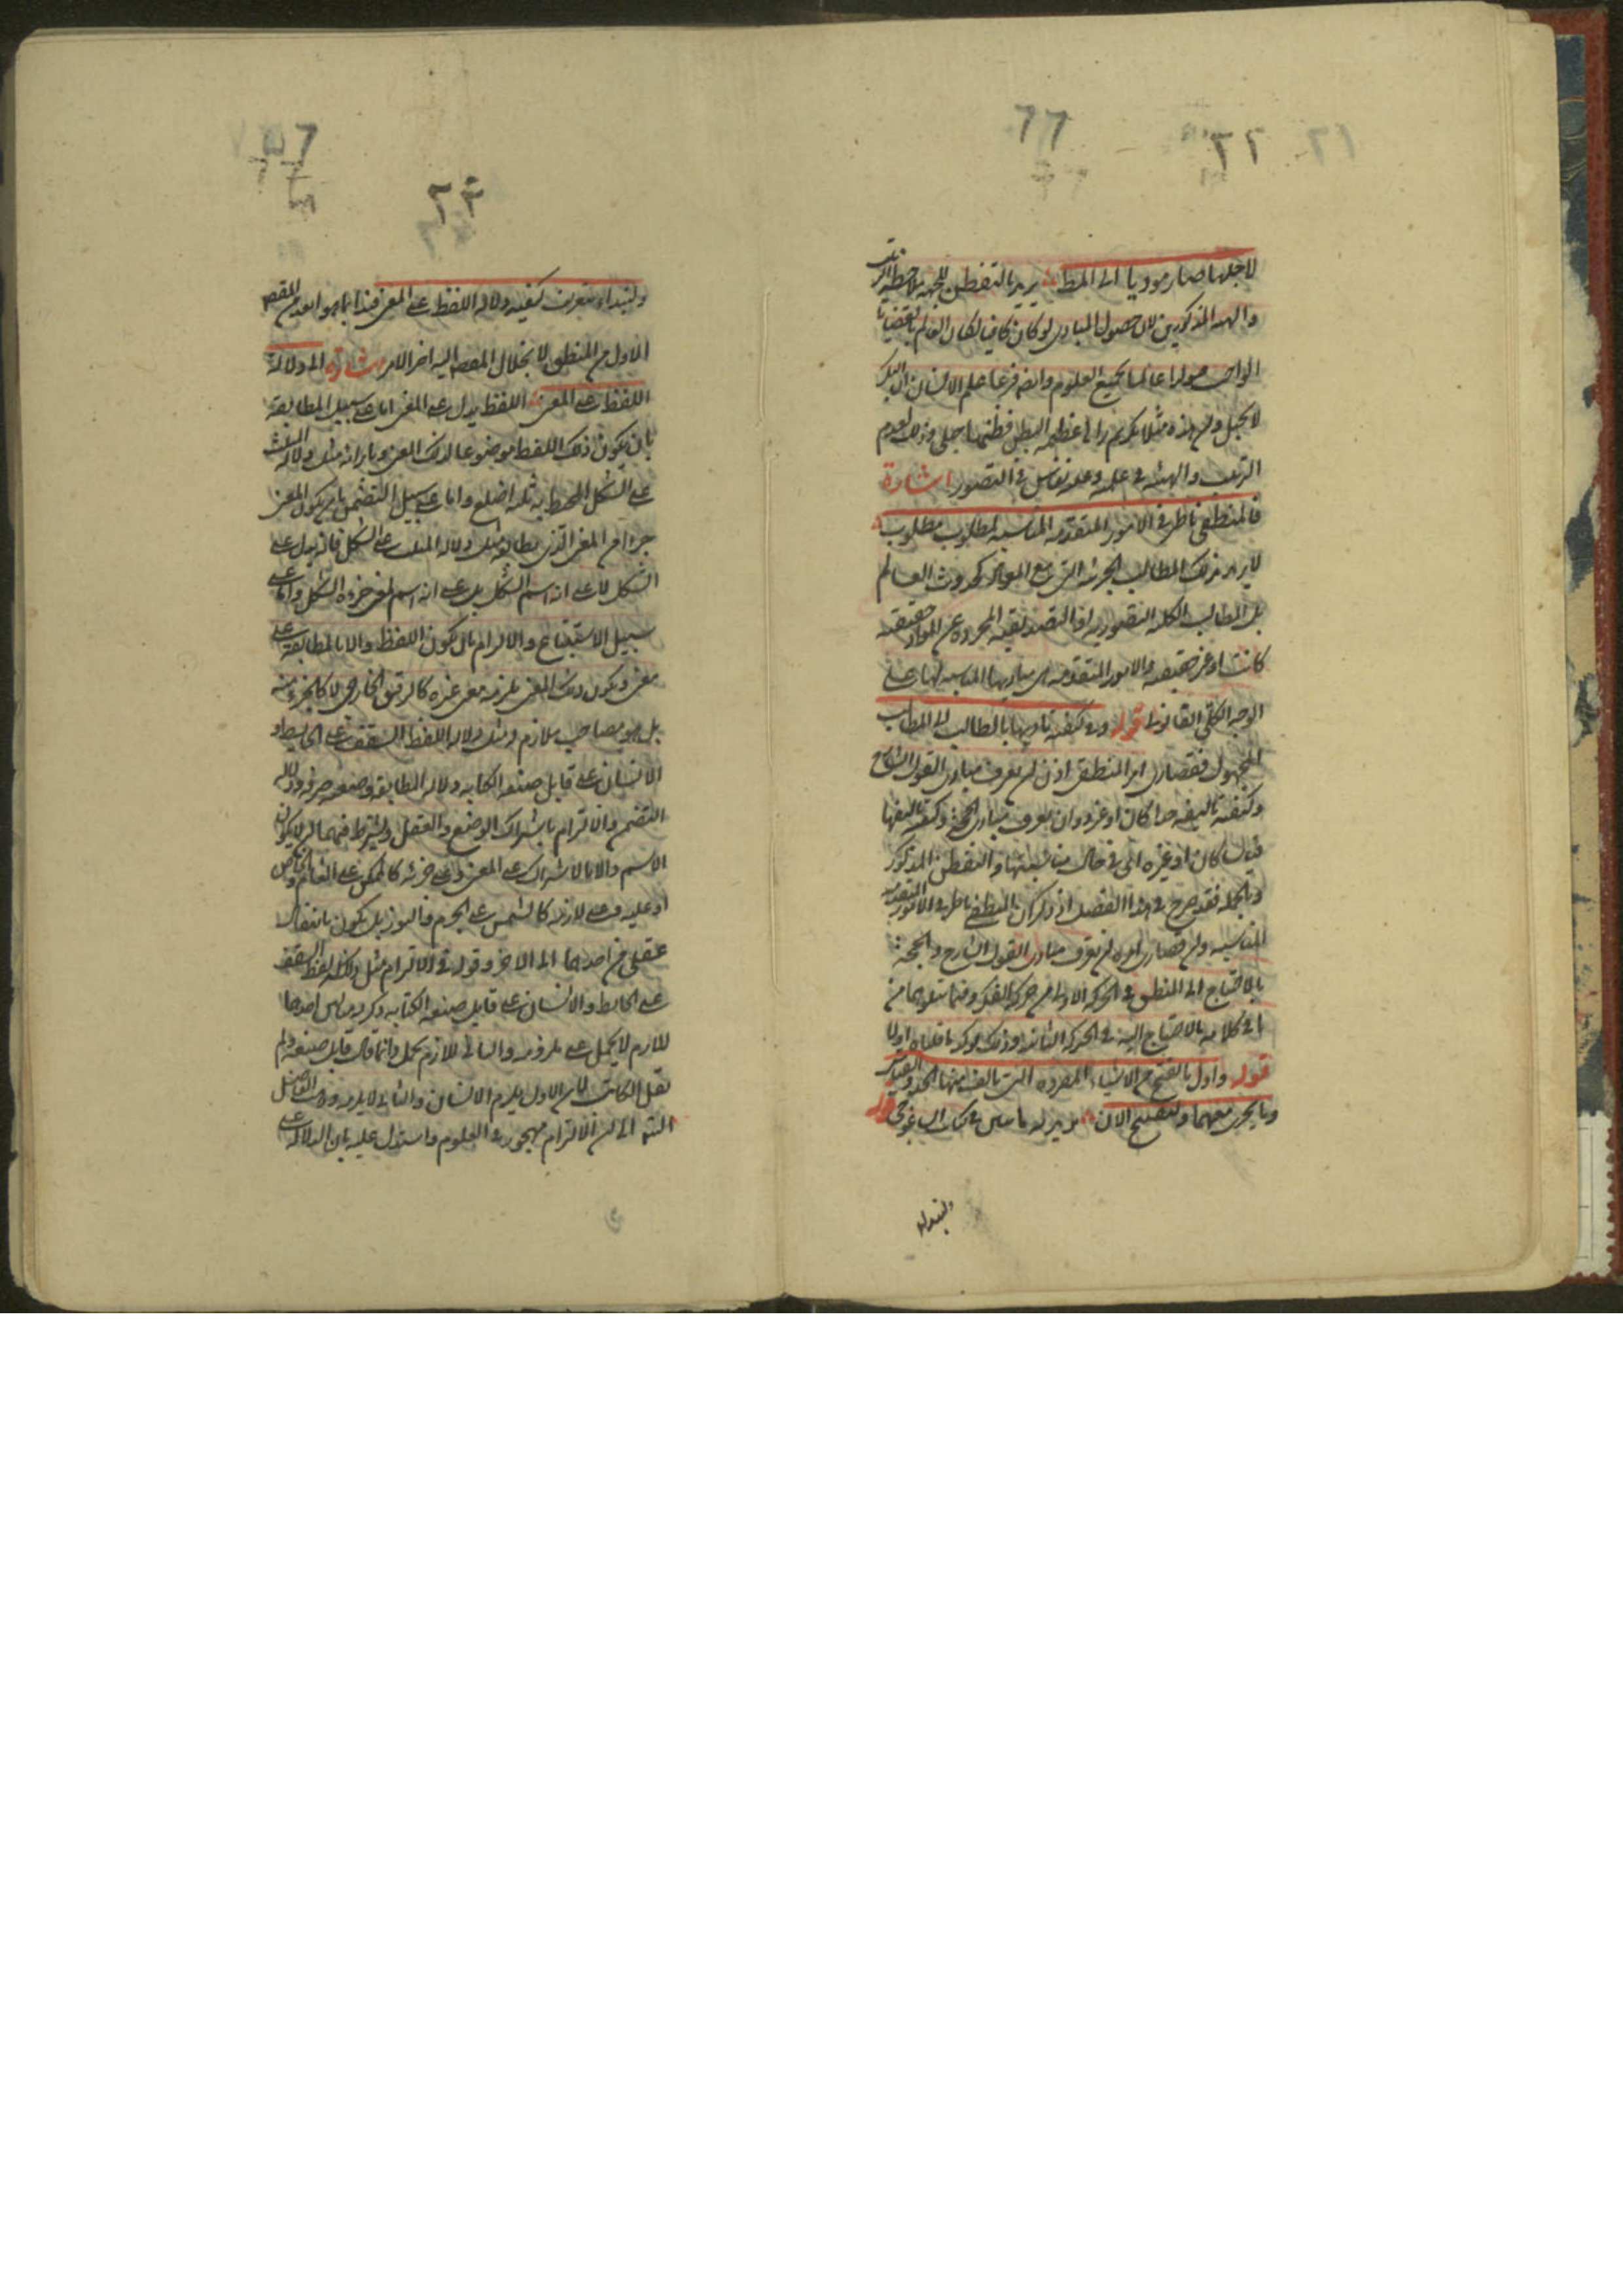 ٢٢
٦٦
لاجلها صار موديا الى المط يريد بالتفطن للجهه ملاحظة الترتيب
والهيه المذكورين لان حصول المبادى لو كان كافيا لكان العالم بالقضايا
الواجب قبولها عالما بجميع العلوم وايضه فربما علم الانسان ان البكر
لا تحبل وان هذه مثلا بكر ثم راها عظيمه البطن فظنها حبلى وذلك لعدم
الترتيب والهيئه فى علمه وعليه نقاس فى التصور اشارة
فالمنطقى ناظر فى الامور المتقدمه المناسبه لمطلوب مطلوب
لا يريد بذلك المطالب الجزئيه التى مع المواد كحدوث العالم
بل المطالب الكليه التصوريه او التصديقيه المجرده عن المواد حقيقيه
كانت او غير حقيقيه والامور المتقدمه هى مباديها المناسبه لها على
الوجه الكلى القانونى قوله وفى كيفيه تاديها بالطالب الى المطلوب
المجهول فقصارى امر المنطقى اذن ان يعرف مبادى القول الشارح
وكيفيه تاليفه حدا كان او غيره وان يعرف مبادى الحجه وكيفيه تاليفها
قياسا كان او غيره اى فى حال مناسبتها والتفطن المذكور
وبالجمله فقد صرح فى هذا الفصل اذ ذكر ان المنطقى ناظر فى الامور المتقدمه
المناسبه وان قصارى امره ان يعرف مبادى القول الشارح والحجه
بالاحتياج الى المنطق فى الحركه الاولى من حركتى الفكر وفيما يتلوهما من
اى كلامه بالاحتياج اليه فى الحركه الثانيه وذلك يوكد ما قلناه اولا
قوله واول ما نفتتح من الاشياء المفرده التى يتالف منها الحد والقياس
وما يجرى مجريهما ولنفتتح الان يريد به ما يبين فى كتاب ايساغوجى قوله
ولنبتدا
٢٣
ولنبتداء بتعريف كيفيه دلاله اللفظ على المعنى فبدا بما هو ابعد من المقصد
الاول من المنطق لانحلال المقصد اليه اخر الامر اشارة الى دلاله
اللفظ على المعنى اللفظ يدل على المعنى اما على سبيل المطابقة
بان يكون ذلك اللفظ موضوعا لذلك المعنى وبازائه مثل دلاله المثلث
على الشكل المحيط به ثلثه اضلع واما على سبيل التضمن بان يكون المعنى
جزءا من المعنى الذى يطابقه مثل دلاله المثلث على الشكل فانه يدل على
الشكل لا على انه اسم الشكل بل على انه اسم لمعنى جزءه الشكل واما على
سبيل الاستتباع والالتزام بان يكون اللفظ دالا بالمطابقة على
معنى ويكون ذلك المعنى يلزمه معنى غيره كالرفيق الخارجى لا كالجزء منه
بل هو مصاحب ملازم له مثل دلاله اللفظ السقف على الحايط و
الانسان على قابل صنعه الكتابه دلاله المطابقة وضعيه صرفه ودلاله
التضمن والالتزام باشتراك الوضع والعقل ويشترط فيهما ان لا يكون
الاسم دالا بالاشتراك على المعنى وعلى جزئه كالممكن على العام والخاص
او عليه وعلى لازمه كالشمس على الجرم والنور بل يكون بانتقال
عقلى من احدهما الى الاخر وقوله فى الالتزام مثل دلاله لفظ السقف
على الحايط والانسان على قابل صنعه الكتابه ذكر مثالين احدهما
لللازم لا يحمل على ملزومه والثانى للازم يحمل وانما قال قابل صنعه ولم
يقل الكاتب لان الاول يلزم الانسان والثانى لا يلزمه وذهب الفاضل
الشه الى ان الالتزام مهجور فى العلوم واستدل عليه بان الدلاله على